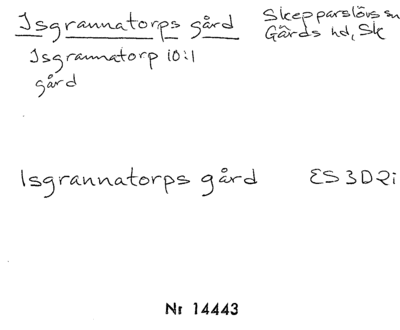 Isgrannatorps gård
Skepparslövs sn
Gärds hd, Sk
Isgrannatorp 10:1
gård
Isgrannatorps gård ES 3D2i
Nr 14443